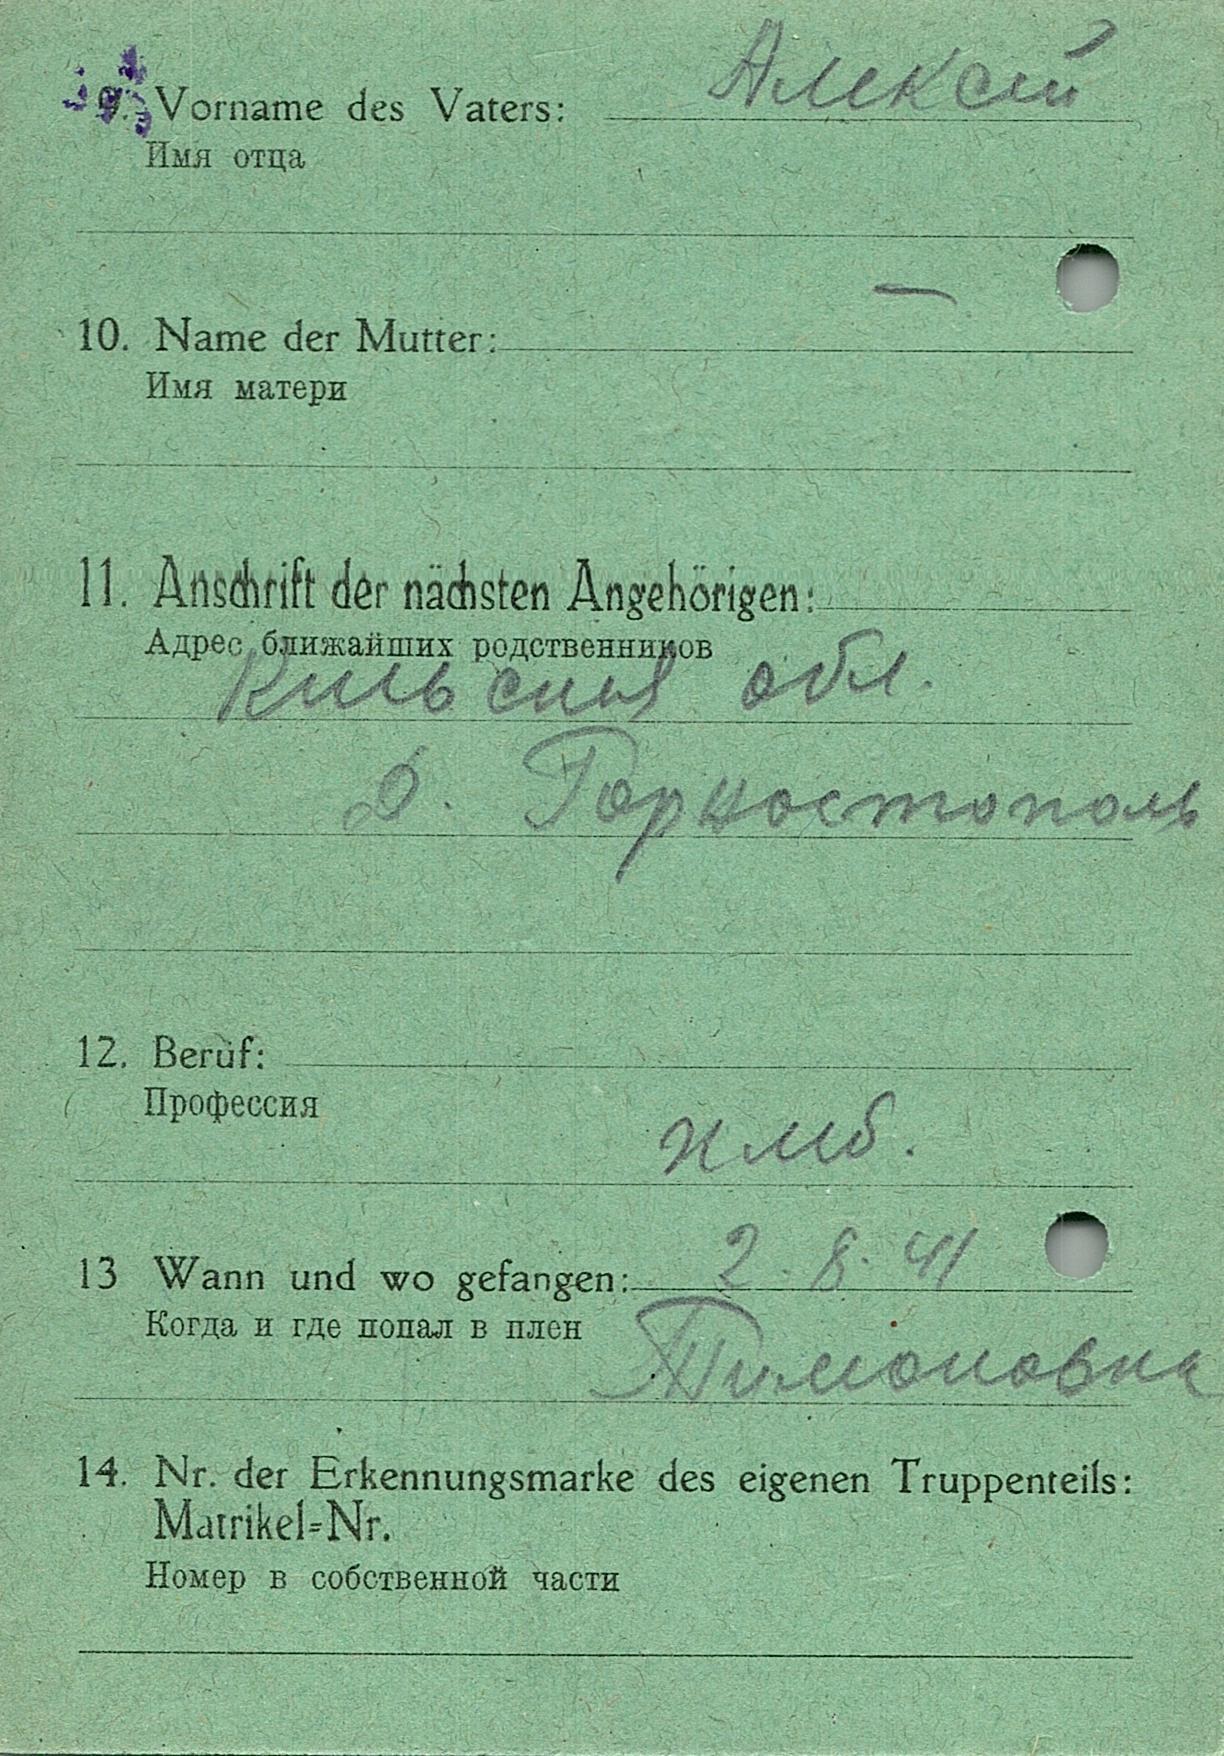 9. Vorname des Vaters: Алексей
Имя отца
—
10. Name der Mutter:
Имя матери
11. Anschrift der nächsten Angehörigen:
Адрес ближайших родственников
обл.
д. Горностополь
12. Beruf:
Профессия
13 Wann und wo gefangen: 2. 8. 41
Когда и где попал в плен
14. Nr. der Erkennungsmarke des eigenen Truppenteils:
Matrikel=Nr.
Номер в собственной части